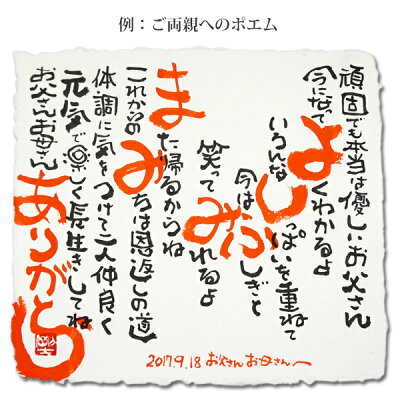 例：ご両親へのポエム
頑固でも本当は優しいお父さん
今になって よくわかるよ
いろんな しっぱいを重ねて
今は ふしぎと
笑って みれるよ
また帰るからね
これからの みちは恩返しの道
体調に気をつけて二人仲良く
元気で楽しく長生きしてね
お父さんお母さん ありがとう
2017.9.18 お父さんお母さんへ